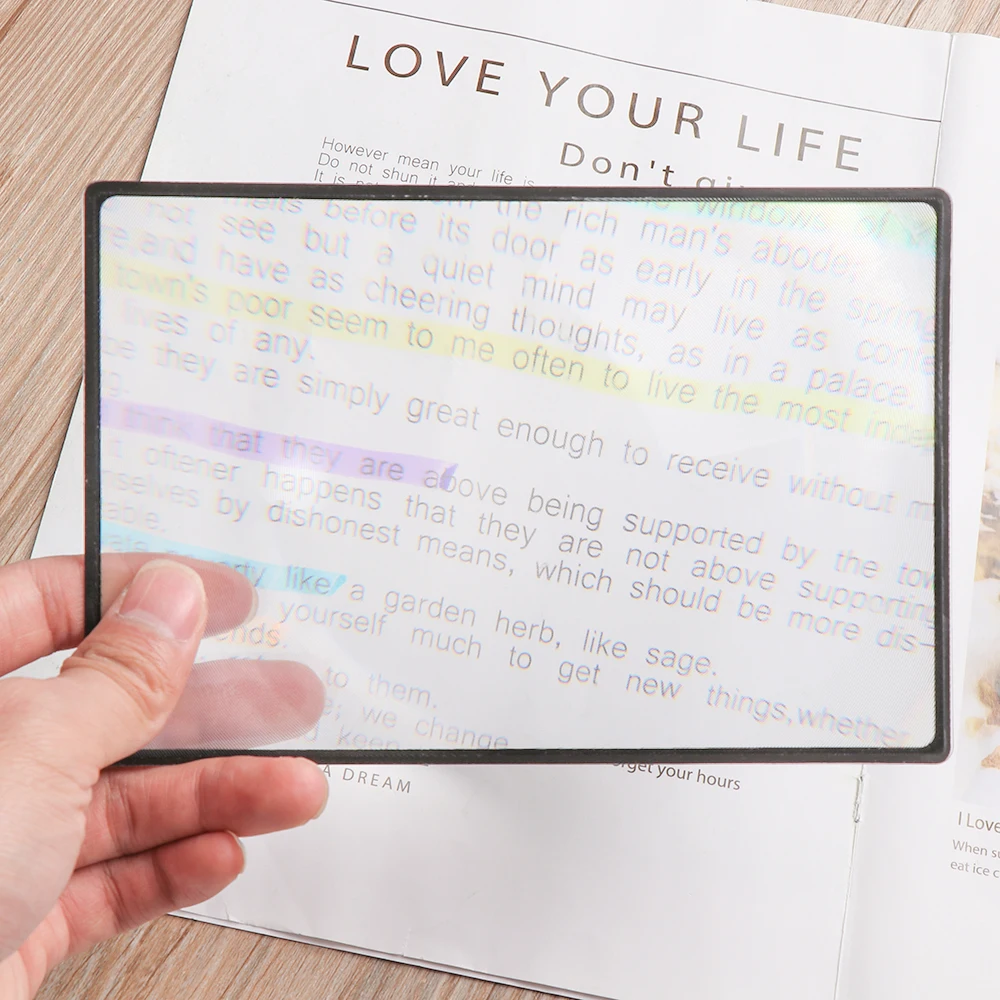 LOVE YOUR LIFE
Don't
However mean your life is
Do not shun it and
It is
the rich man's abode,
before its door as early in the spring
not see but a quiet mind may live as
and have as cheering thoughts, as in a palace.
town's poor seem to me often to live the most
lives of any.
be they are simply great enough to receive without
think that they are above being supported by the
it oftener happens that they are not above supporting
by dishonest means, which should be more dis-
like a garden herb, like sage.
yourself much to get new things,whether
to them.
we change
keep
A DREAM
your hours
I Love
When
eat ice